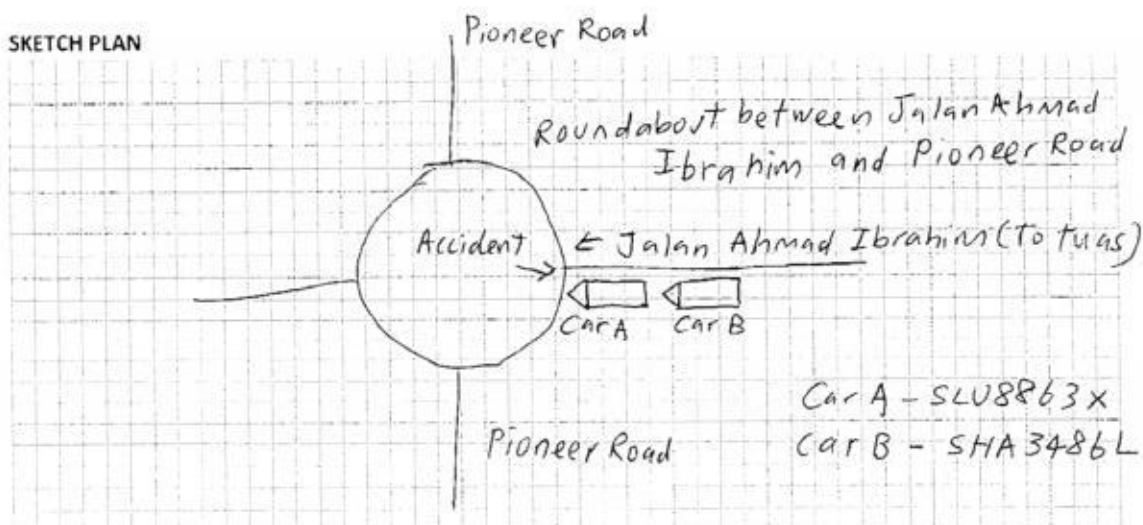 Pioneer Road
SKETCH PLAN
Roundabout between Jalan Ahmad
Ibrahim and Pioneer Road
Accident
← Jalan Ahmad Ibrahim (To tuas)
Car A
Car B
Car A - SLU8863X
Car B - SHA3486L
Pioneer Road